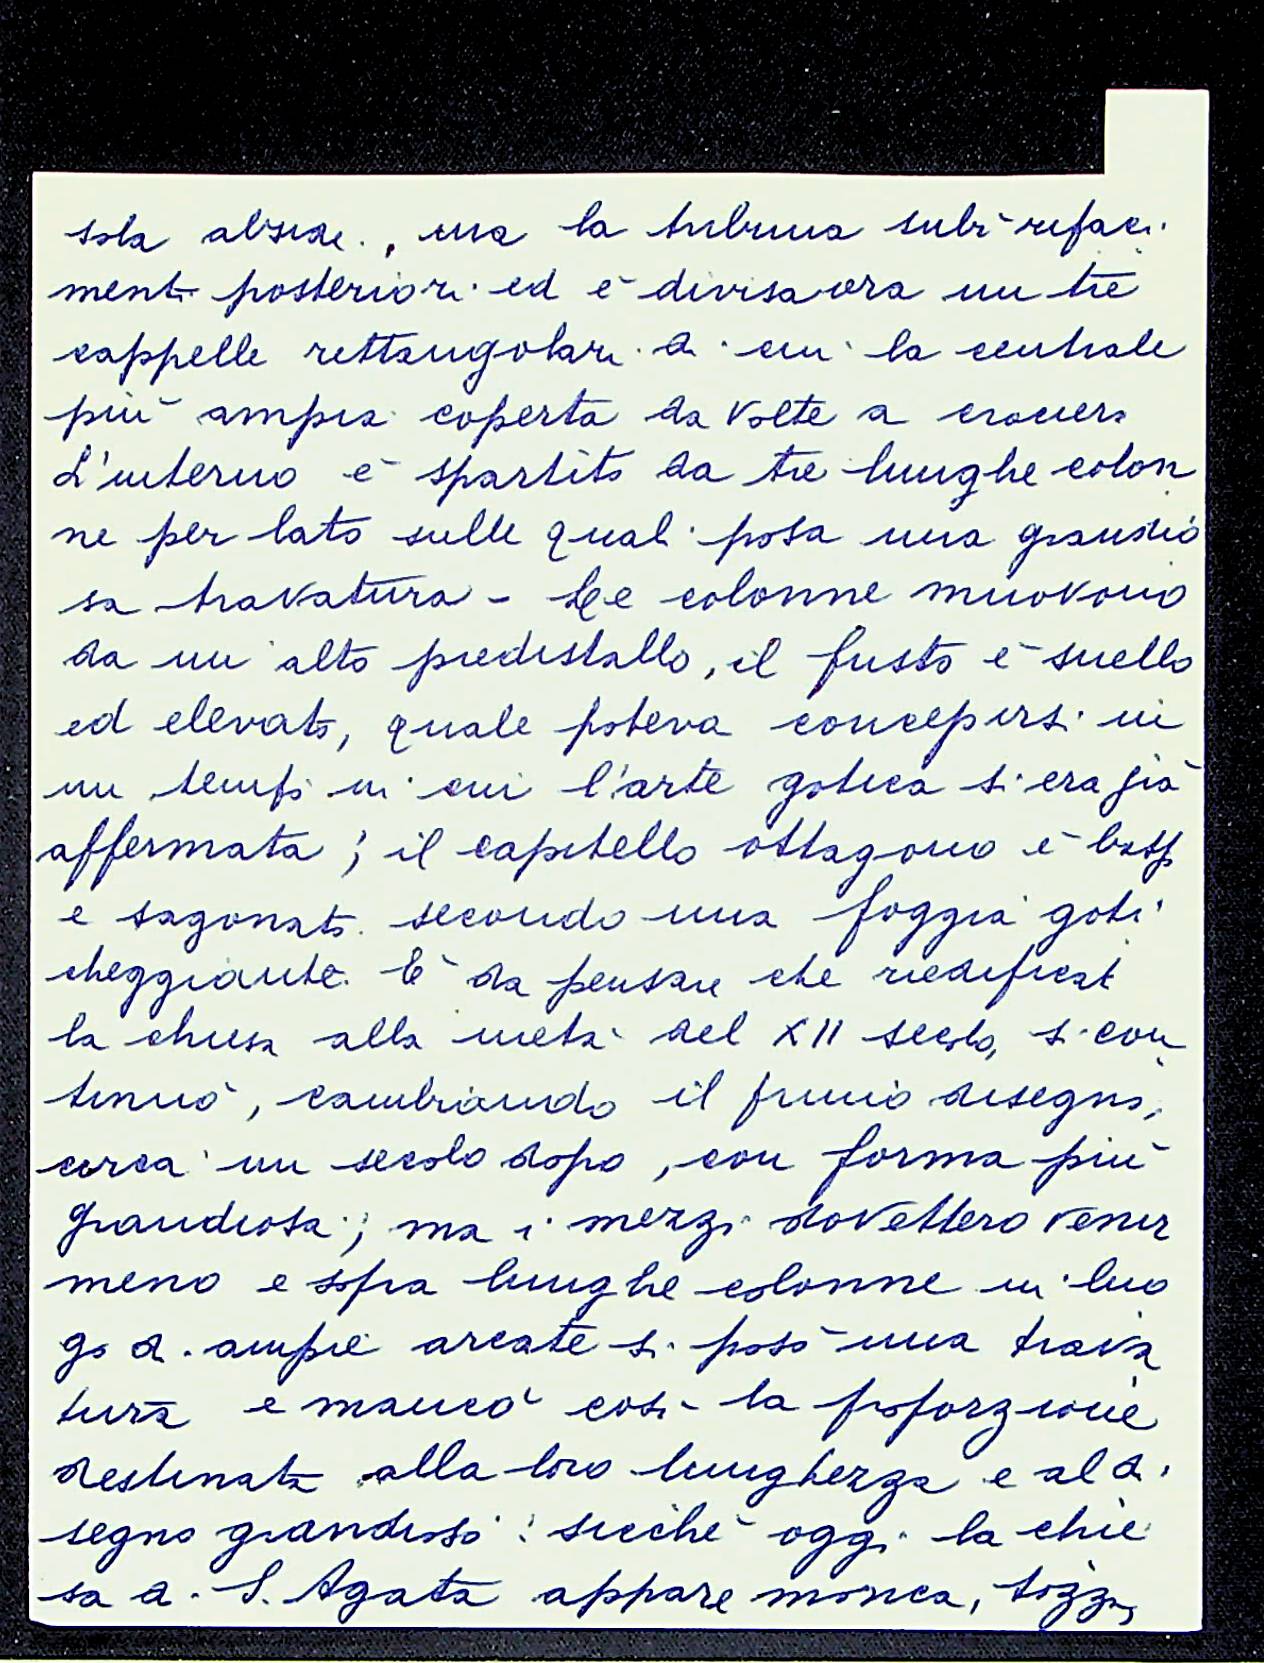 sola abside, ma la tribuna subì rifaci
menti posteriori ed è divisa ora in tre
cappelle rettangolari di cui la centrale
più ampia coperta da volte a crociera
L'interno è spartito da tre lunghe colon
ne per lato sulle quali posa una grandio
sa travatura - Le colonne muovono
da un alto piedistallo, il fusto è snello
ed elevato, quale poteva concepirsi in
un tempo in cui l'arte gotica si era già
affermata; il capitello ottagono è basso
e sagomato secondo una foggia goti
cheggiante. È da pensare che riedificat
la chiesa alla metà del XII secolo, si con
tinuò, cambiando il primo disegno,
circa un secolo dopo, con forma più
grandiosa; ma i mezzi dovettero venir
meno e sopra lunghe colonne in luo
go di ampie arcate si posò una trava
tura e mancò così la proporzione
destinata alla loro lunghezza e al di
segno grandioso: sicché oggi la chie
sa di S. Agata appare monca, tozza,